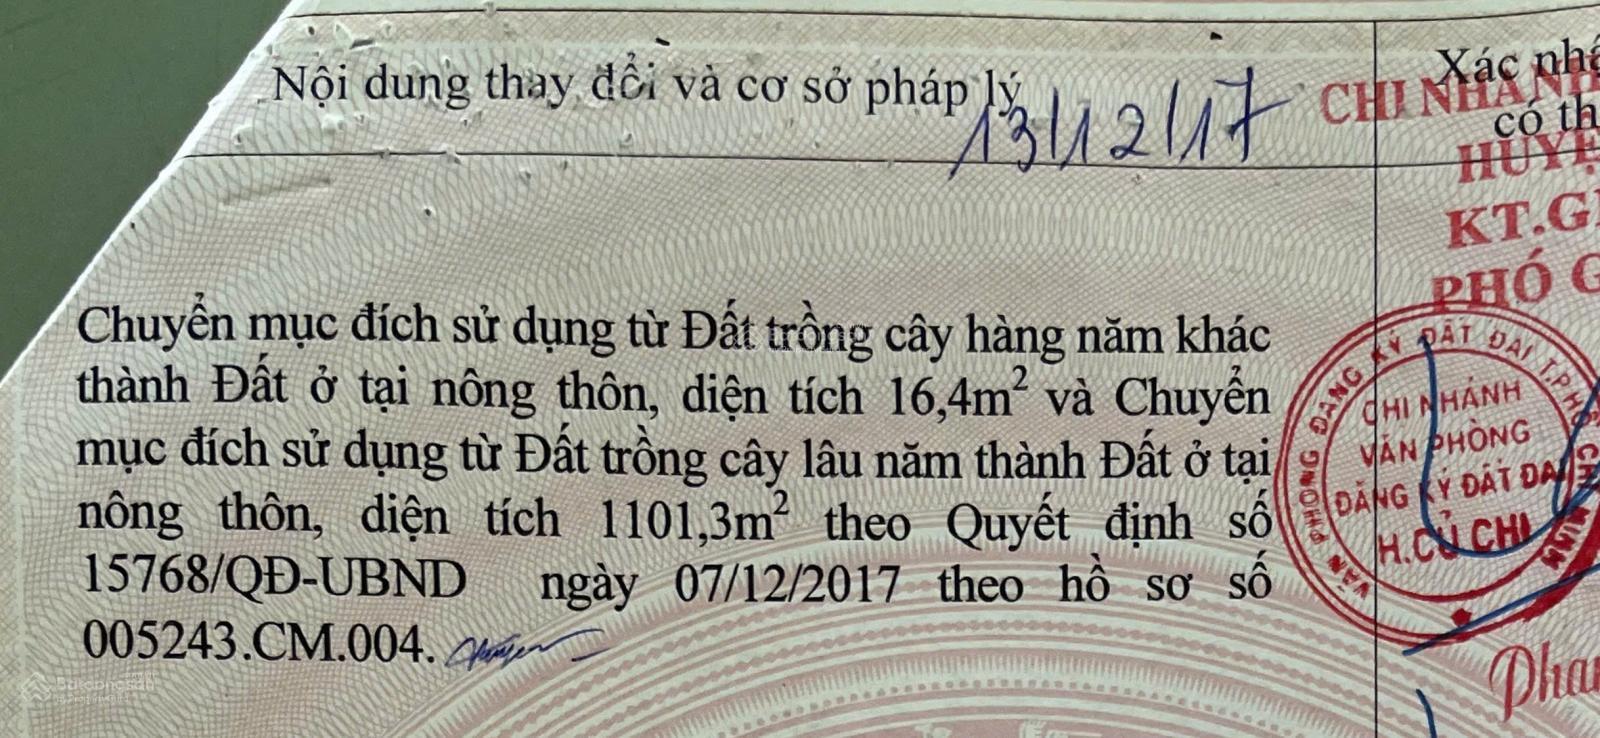 Nội dung thay đổi và cơ sở pháp lý
13/12/17
Xác nhậ
có th
CHI NHÁNH
HUYỆ
KT.GI
PHÓ G
Chuyển mục đích sử dụng từ Đất trồng cây hàng năm khác
thành Đất ở tại nông thôn, diện tích 16,4m² và Chuyển
mục đích sử dụng từ Đất trồng cây lâu năm thành Đất ở tại
nông thôn, diện tích 1101,3m² theo Quyết định số
15768/QĐ-UBND ngày 07/12/2017 theo hồ sơ số
005243.CM.004.
VĂN PHÒNG ĐĂNG KÝ ĐẤT ĐAI T.PHỐ CHÍ MINH
CHI NHÁNH
VĂN PHÒNG
ĐĂNG KÝ ĐẤT ĐAI
H.CỦ CHI
Phan
Batdongsan